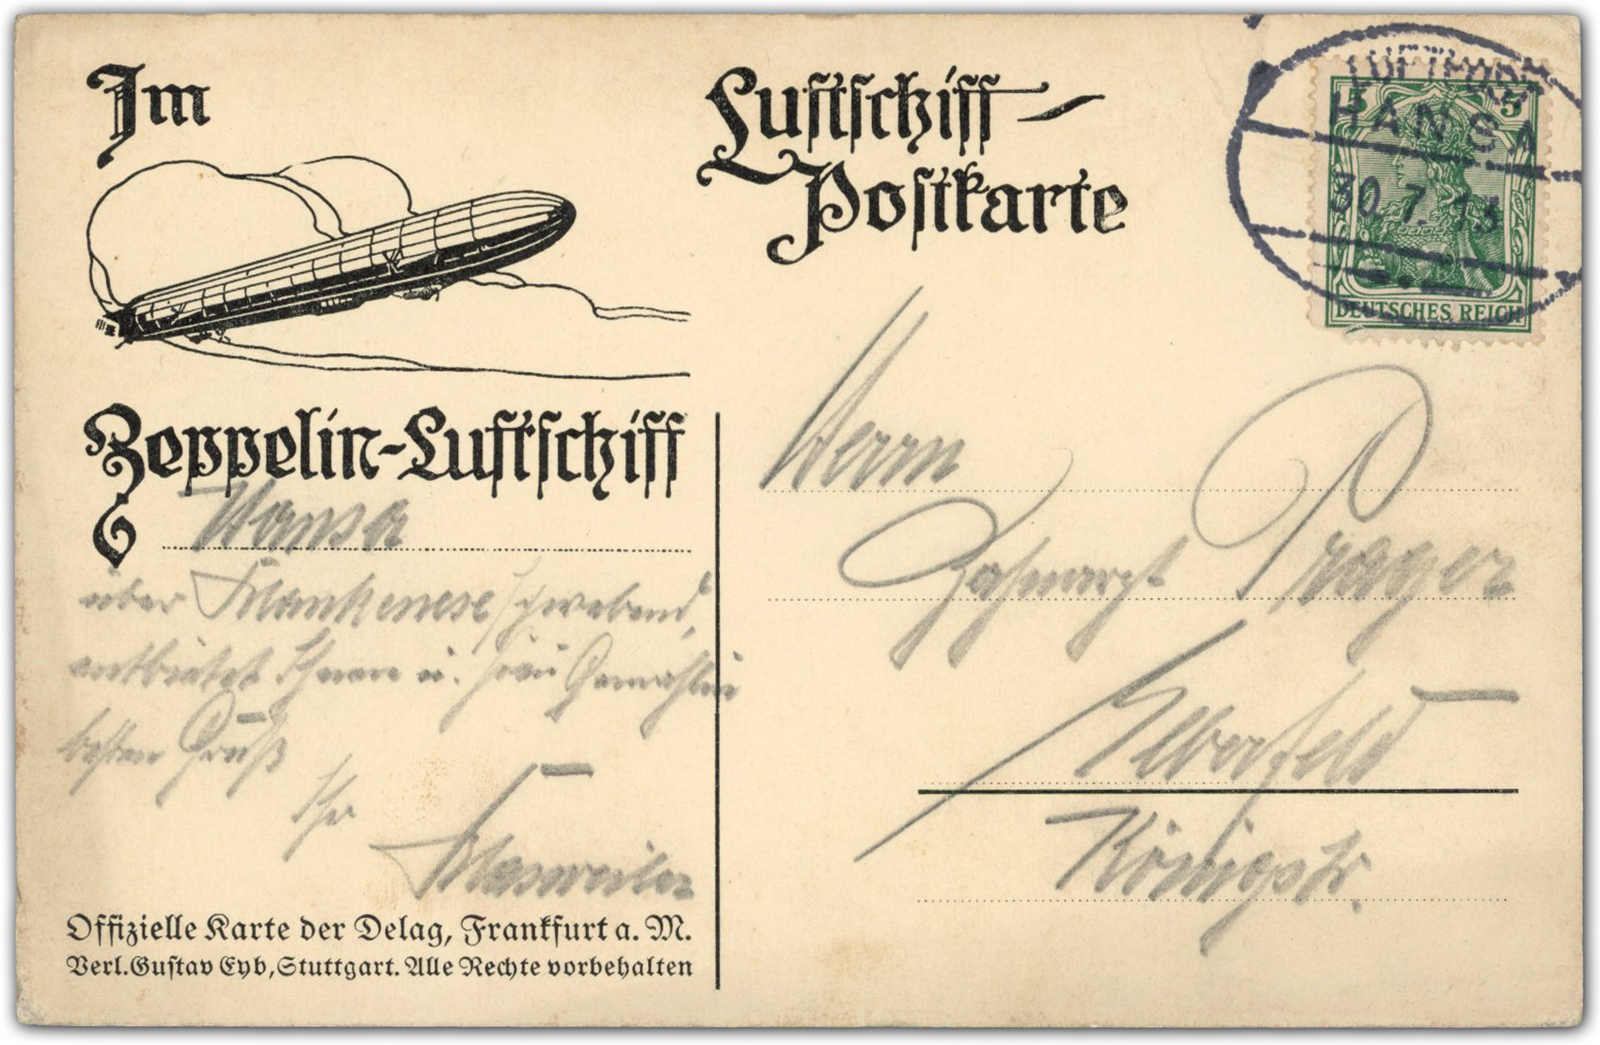 Im
Zeppelin-Luftschiff
Hansa
über Blankenese schwebend,
entbietet Ihnen u. Frau Gemahlin
besten Gruß
Ihr
Offizielle Karte der Delag, Frankfurt a. M.
Verl. Gustav Eyb, Stuttgart. Alle Rechte vorbehalten
Luftschiff-
Postkarte
HANSA
30.7.13
5 5
DEUTSCHES REICH
Herrn
Zahnarzt Prager
Elberfeld
Königstr.